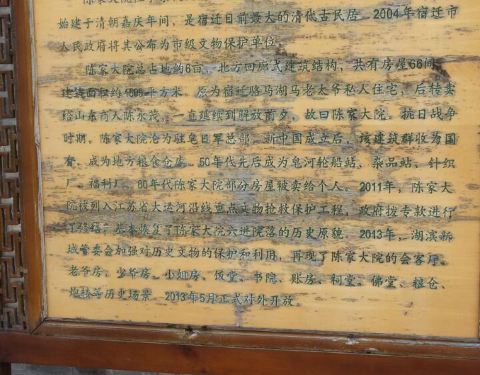 始建于清朝嘉庆年间，是宿迁目前最大的清代古民居。2004年宿迁市
人民政府将其公布为市级文物保护单位。
陈家大院总占地约6亩，北方回廊式建筑结构，共有房屋66间，
建筑面积约1805平方米。原为宿迁骆马湖马老太爷私人住宅，后转卖
给山东商人陈尔茂，一直延续到解放前夕，故曰陈家大院。抗日战争
时期，陈家大院沦为驻皂日军总部。新中国成立后，该建筑群收为国
有，成为地方粮食仓库。50年代先后成为皂河轮船站、杂品站、针织
厂、福利厂。80年代陈家大院部分房屋被卖给个人。2011年，陈家大
院被列入江苏省大运河沿线重点文物抢救保护工程，政府拨专款进行
了修缮，基本恢复了陈家大院六进院落的历史原貌。2013年，湖滨新
城管委会加强对历史文物的保护和利用，再现了陈家大院的会客厅、
老爷房、少爷房、小姐房、饭堂、书院、账房、祠堂、佛堂、粮仓、
炮楼等历史场景。2013年5月正式对外开放